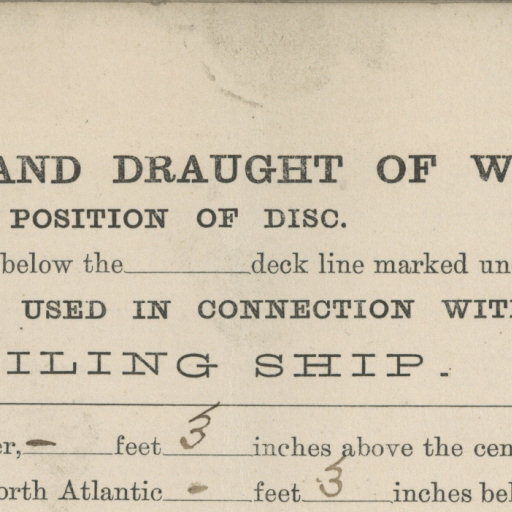 AND DRAUGHT OF W
POSITION OF DISC.
below the________deck line marked un
USED IN CONNECTION WIT
ILING SHIP.
er, - feet 3 inches above the cen
orth Atlantic - feet 3 inches bel